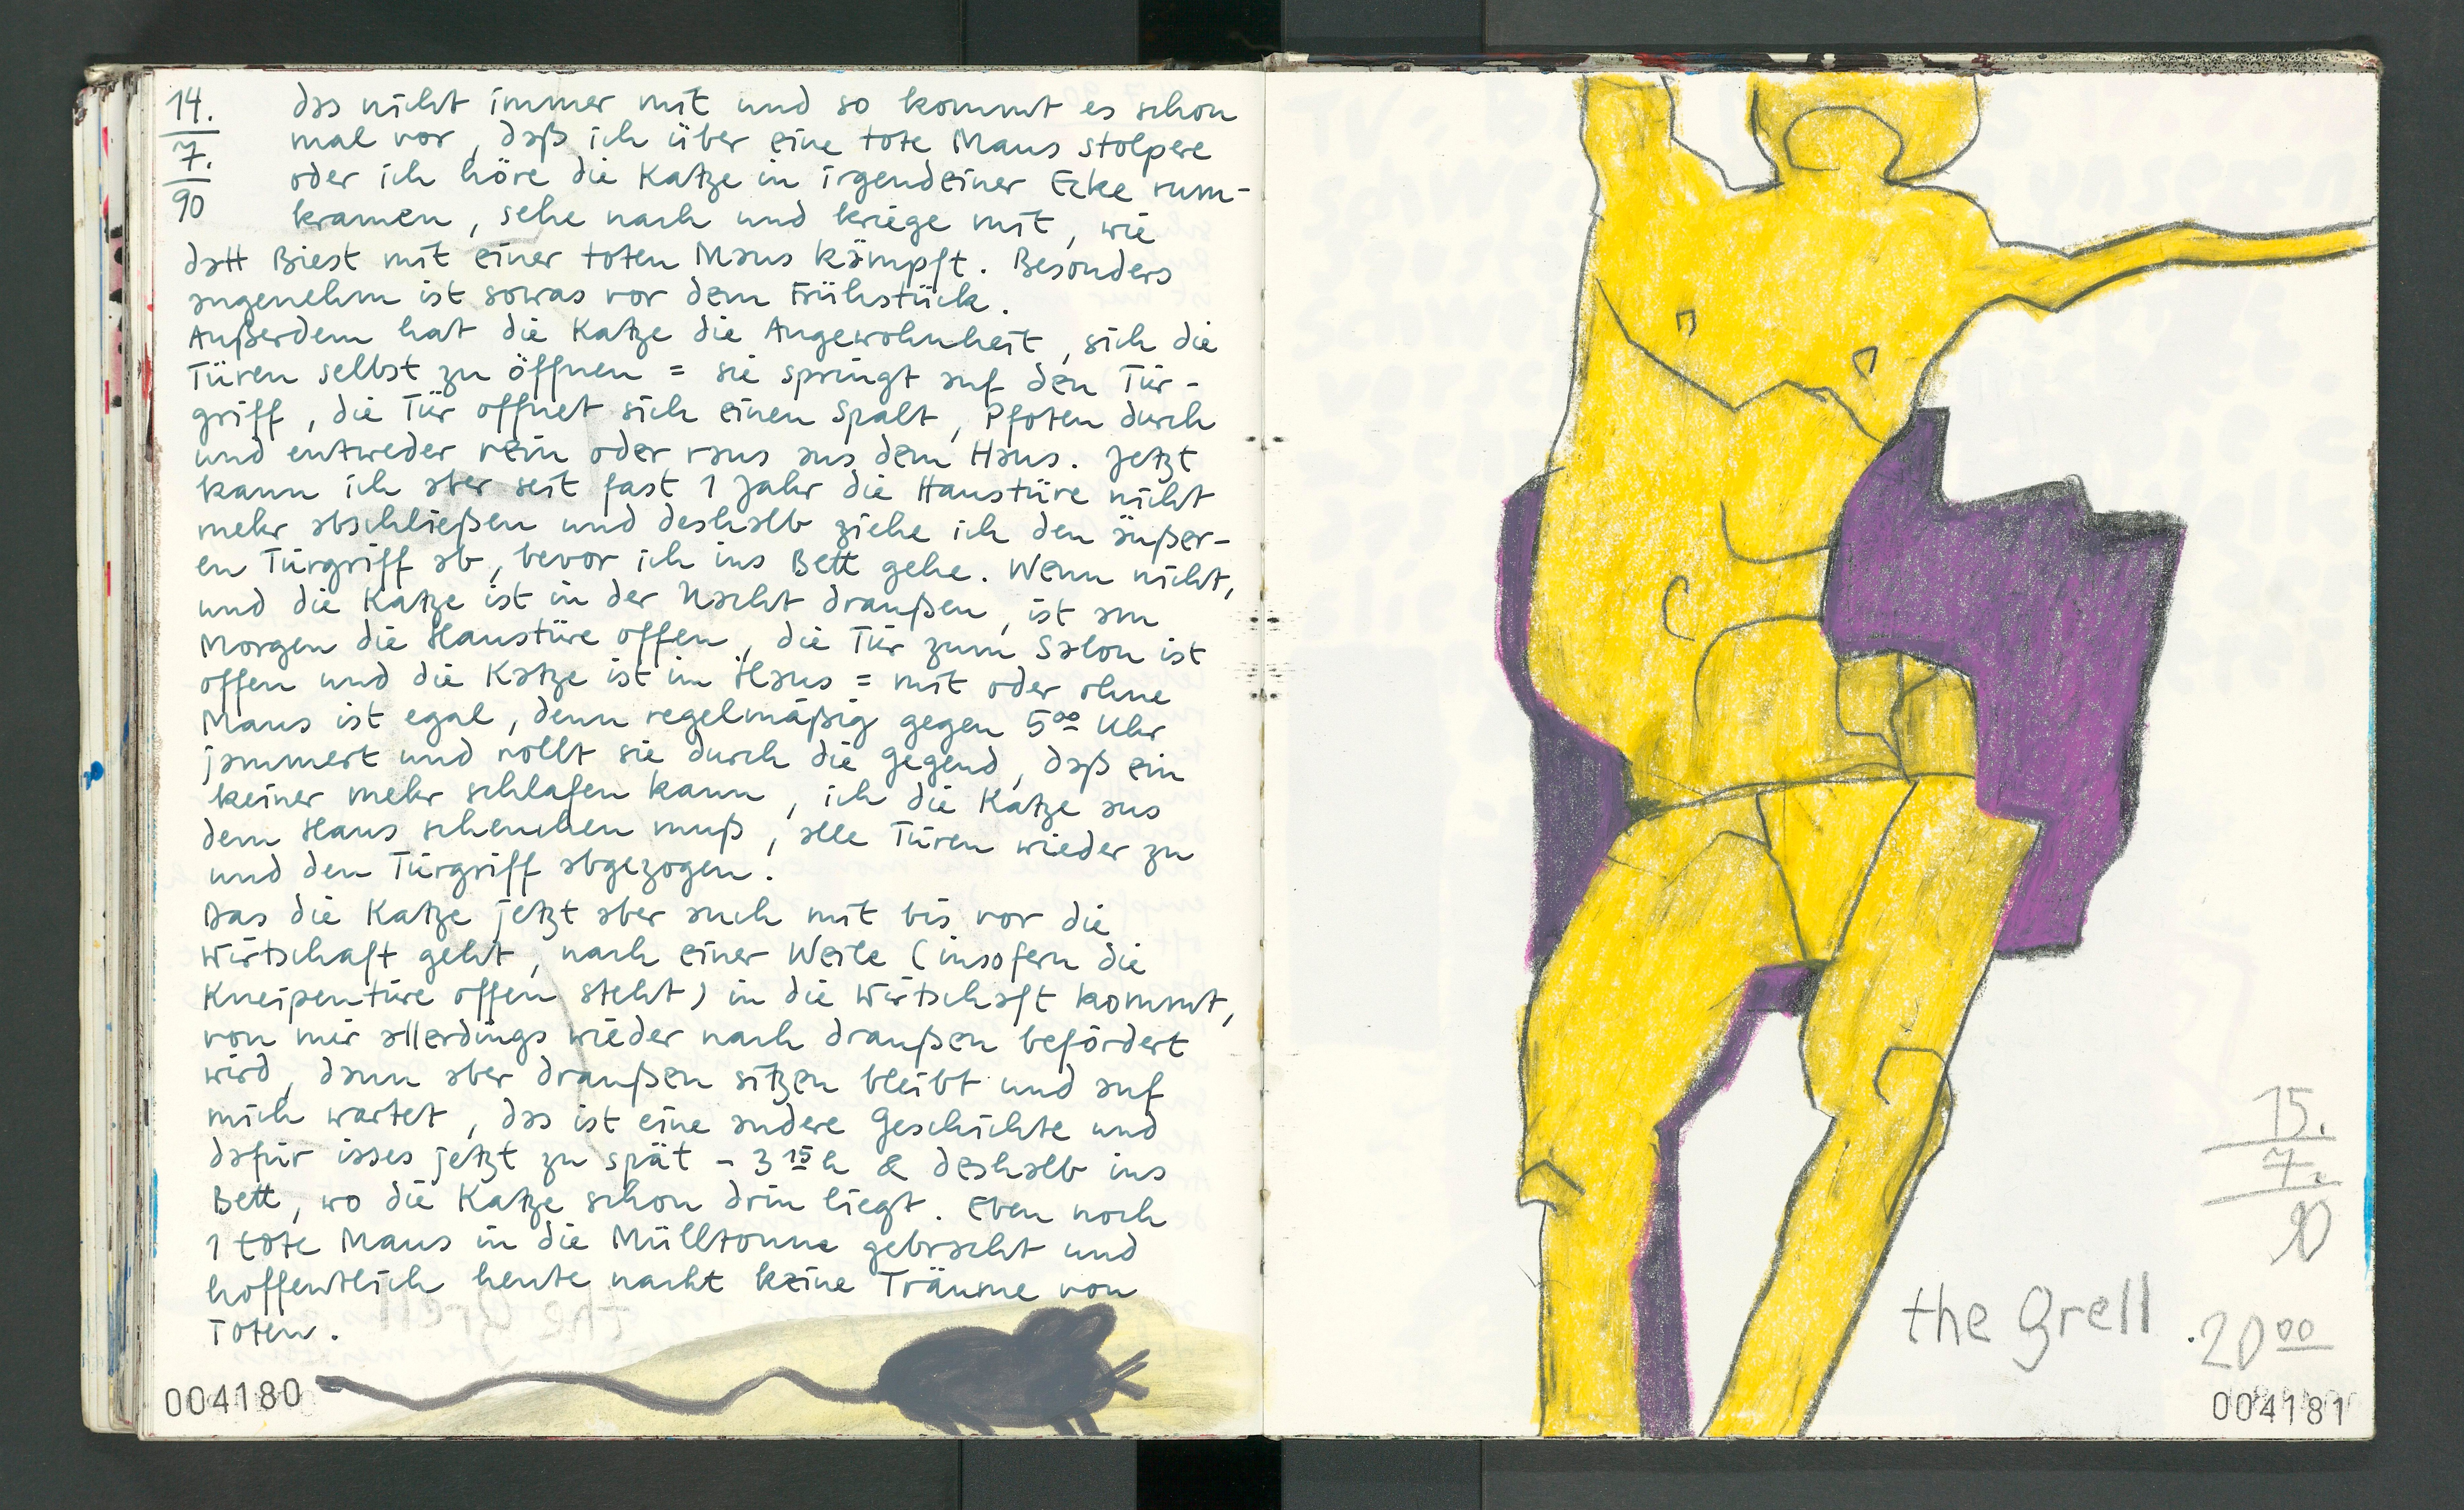 14.
7.
90
das nicht immer mit und so kommt es schon
mal vor, daß ich über eine tote Maus stolpere
oder ich höre die Katze in irgendeiner Ecke rum-
kramen, sehe nach und kriege mit, wie
datt Biest mit einer toten Maus kämpft. Besonders
angenehm ist sowas vor dem Frühstück.
Außerdem hat die Katze die Angewohnheit, sich die
Türen selbst zu öffnen = sie springt auf den Tür-
griff, die Tür öffnet sich einen Spalt, Pfoten durch
und entweder rein oder raus aus dem Haus. Jetzt
kann ich aber seit fast 1 Jahr die Haustüre nicht
mehr abschließen und deshalb ziehe ich den äußer-
en Türgriff ab, bevor ich ins Bett gehe. Wenn nicht,
und die Katze ist in der Nacht draußen, ist am
Morgen die Haustüre offen, die Tür zum Salon ist
offen und die Katze ist im Haus = mit oder ohne
Maus ist egal, denn regelmäßig gegen 5⁰⁰ Uhr
jammert und rollt sie durch die Gegend, daß ein
keiner mehr schlafen kann, ich die Katze aus
dem Haus scheuchen muß, alle Türen wieder zu
und den Türgriff abgezogen.
Das die Katze jetzt aber auch mit bis vor die
Wirtschaft geht, nach einer Weile (insofern die
Kneipentüre offen steht) in die Wirtschaft kommt,
von mir allerdings wieder nach draußen befördert
wird, dann aber draußen sitzen bleibt und auf
mich wartet, das ist eine andere Geschichte und
dafür isses jetzt zu spät - 3¹⁵ h & deshalb ins
Bett, wo die Katze schon drin liegt. Eben noch
1 tote Maus in die Mülltonne gebracht und
hoffentlich heute nacht keine Träume von
Toten.
004180
15.
7.
90
the Grell
.20⁰⁰
004181